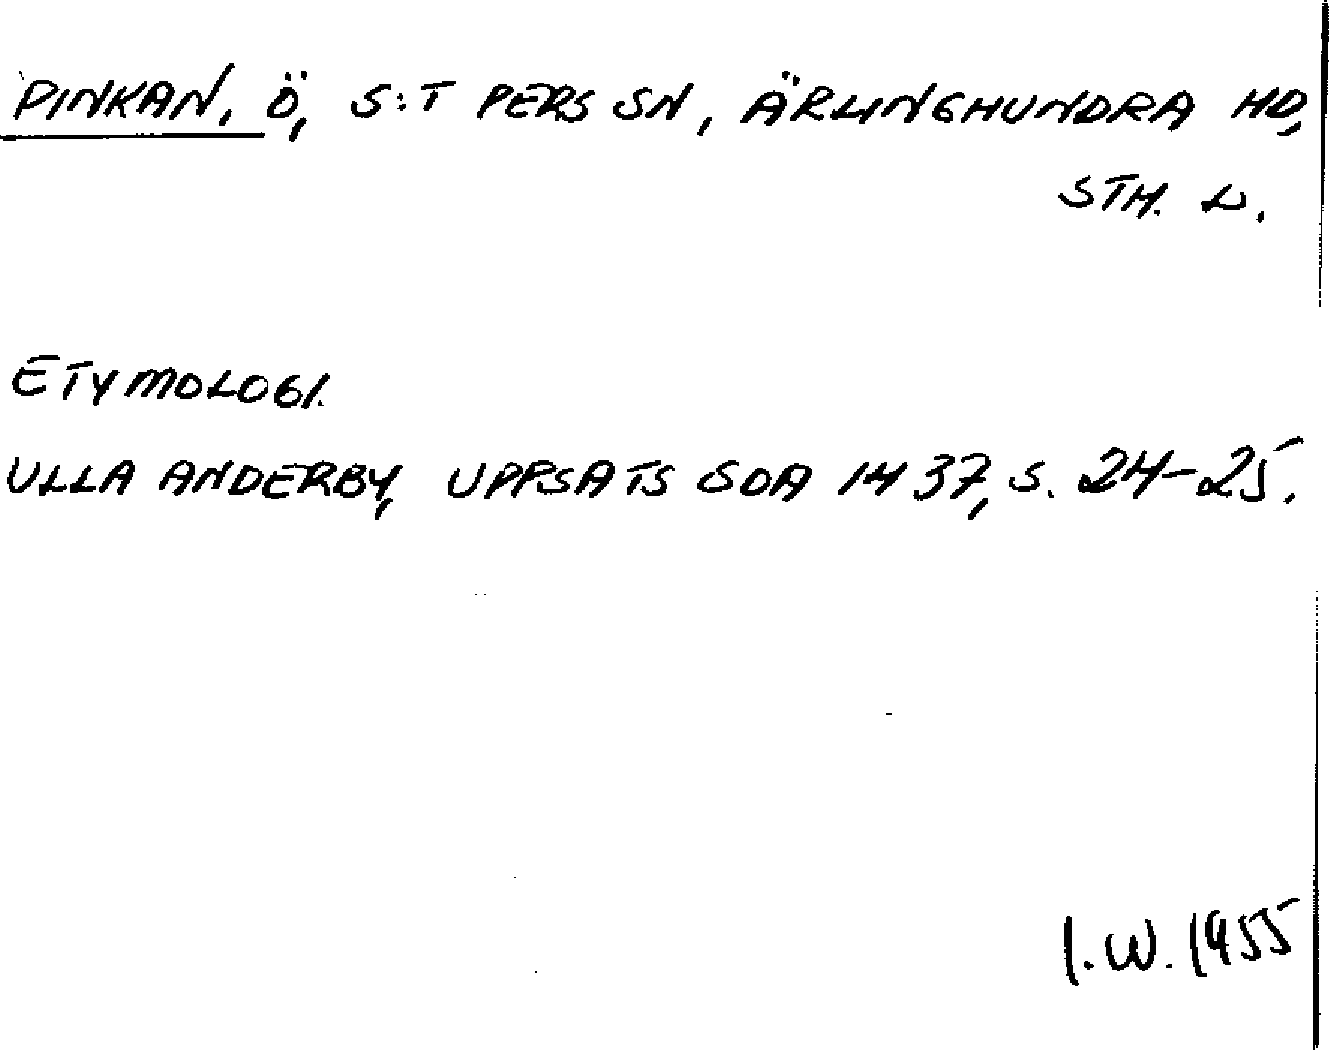 PINKAN, Ö, S:T PERS SN, ÄRLINGHUNDRA HD,
STH. L.
ETYMOLOGI.
ULLA ANDERBY, UPPSATS SOA 1437, S. 24-25.
I.W. 1955